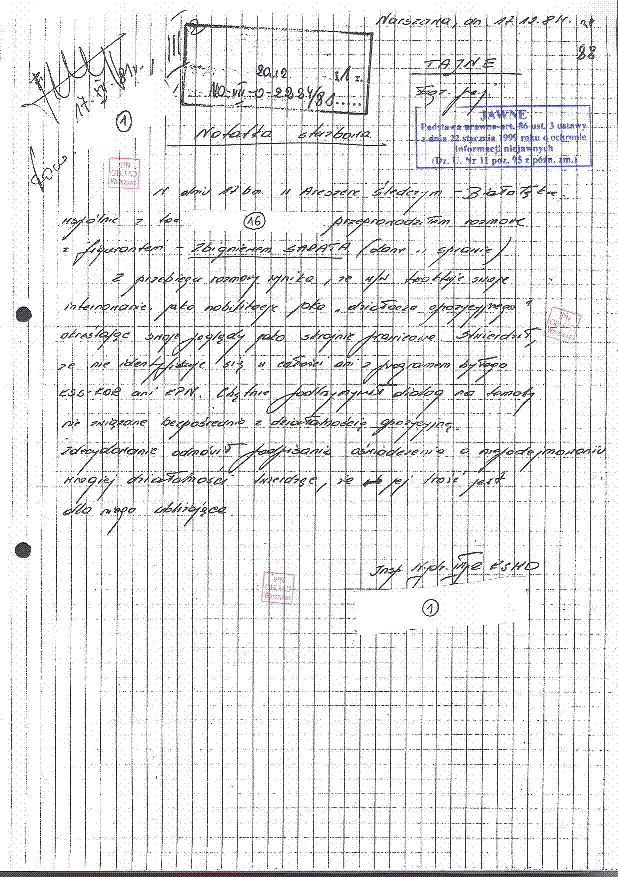 Warszawa, dn. 17.12.81 r.
88
TAJNE
Egz. poj.
20.12 81 r.
17.XII.81 r.
1
JAWNE
Podstawa prawna-art. 86 ust. 3 ustawy
z dnia 22 stycznia 1999 roku o ochronie
informacji niejawnych
(Dz. U. Nr 11 poz. 95 z późn. zm.)
Notatka służbowa
IPN
W dniu 17 bm w Areszcie Śledczym - Białołęka
wspólnie z tow. 16 przeprowadziłem rozmowę
z figurantem - Zbigniewem (dane w sprawie)
Z przebiegu rozmowy wynika, że w/w traktuje swoje
internowanie jako nobilitację jako "działacza opozycyjnego"
określając swoje poglądy jako skrajnie prawicowe. Stwierdził,
że nie identyfikuje się w całości ani z programem byłego
KSS-KOR ani KPN. Chętnie podtrzymywał dialog na tematy
nie związane bezpośrednio z działalnością opozycyjną.
Zdecydowanie odmówił podpisania oświadczenia o niepodejmowaniu
wrogiej działalności twierdząc, że jej treść jest
dla niego ubliżająca
Insp. Wydz. KSMO
IPN
1